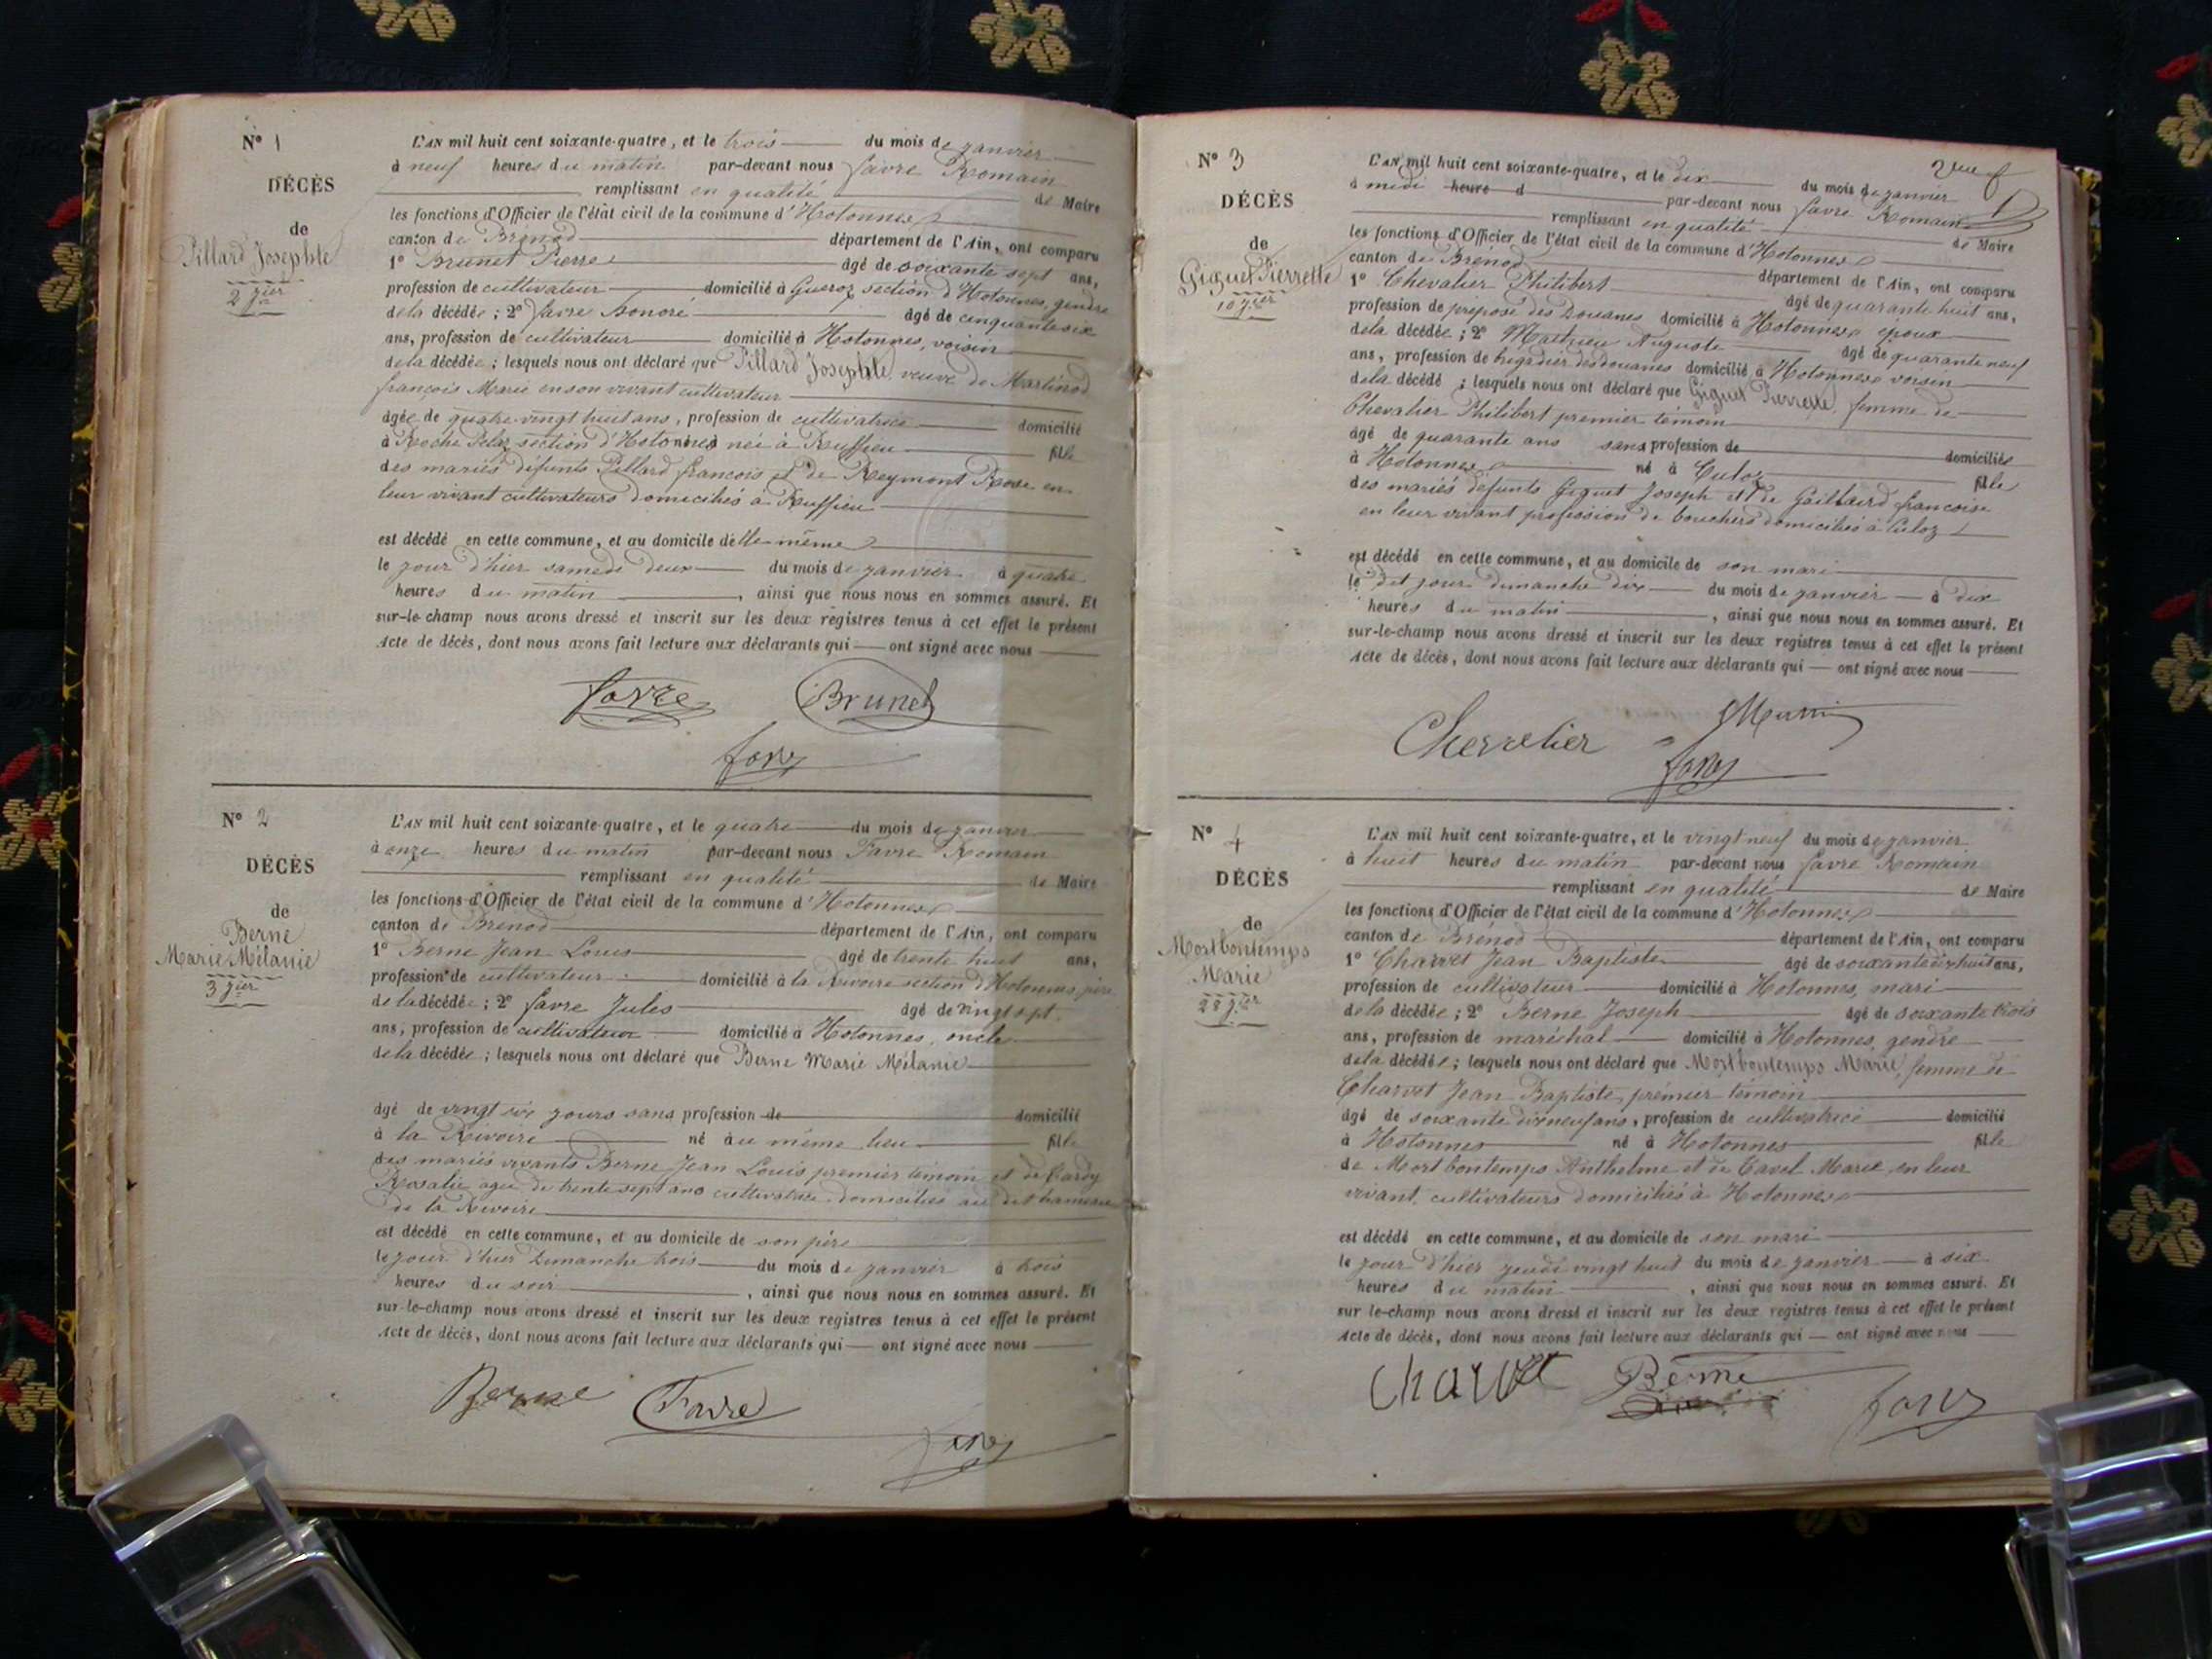 N° 1
DÉCÈS
de
Pillard Josephte
2 jier
L'AN mil huit cent soixante-quatre, et le trois du mois de janvier
à neuf heures du matin par-devant nous favre Romain
remplissant en qualité de Maire
les fonctions d'Officier de l'état civil de la commune d'Hotonnes
canton de Brénod département de l'Ain, ont comparu
1° Brunet Pierre âgé de soixante sept ans,
profession de cultivateur domicilié à Gueroz section d'Hotonnes, gendre
de la décédée ; 2° favre honoré âgé de cinquante six
ans, profession de cultivateur domicilié à Hotonnes, voisin
de la décédée ; lesquels nous ont déclaré que Pillard Josephte veuve de Martinod
françois Marie en son vivant cultivateur
âgée de quatre vingt huit ans, profession de cultivatrice domicilié
à section d'Hotonnes née à Ruffieu fille
des mariés défunts Pillard françois et de Reymont Rose en
leur vivant cultivateurs domiciliés à Ruffieu
est décédé en cette commune, et au domicile d'elle même
le jour d'hier samedi deux du mois de janvier à quatre
heures du matin , ainsi que nous nous en sommes assuré. Et
sur-le-champ nous avons dressé et inscrit sur les deux registres tenus à cet effet le présent
Acte de décès, dont nous avons fait lecture aux déclarants qui ont signé avec nous
favre Brunet
favre
N° 2
DÉCÈS
de
Berne
Marie Mélanie
3 jier
L'AN mil huit cent soixante-quatre, et le quatre du mois de janvier
à onze heures du matin par-devant nous Favre Romain
remplissant en qualité de Maire
les fonctions d'Officier de l'état civil de la commune d'Hotonnes
canton de Brénod département de l'Ain, ont comparu
1° Berne Jean Louis âgé de trente huit ans,
profession de cultivateur domicilié à la Rivoire section d'Hotonnes père
de la décédée ; 2° favre Jules âgé de vingt sept
ans, profession de cultivateur domicilié à Hotonnes, oncle
de la décédée ; lesquels nous ont déclaré que Berne Marie Mélanie
âgé de vingt six jours sans profession de domicilié
à la Rivoire né au même lieu fille
des mariés vivants Berne Jean Louis premier témoin et de Cardy
Rosalie agée de trente sept ans cultivatrice domiciliés au dit hameau
de la Rivoire
est décédé en cette commune, et au domicile de son père
le jour d'hier Dimanche trois du mois de janvier à trois
heures du soir , ainsi que nous nous en sommes assuré. Et
sur-le-champ nous avons dressé et inscrit sur les deux registres tenus à cet effet le présent
Acte de décès, dont nous avons fait lecture aux déclarants qui ont signé avec nous
Berne Favre
favre
N° 3
DÉCÈS
de
Giguet Pierrette
10 jier
L'AN mil huit cent soixante-quatre, et le dix du mois de janvier
à midi heure d par-devant nous favre Romain
remplissant en qualité de Maire
les fonctions d'Officier de l'état civil de la commune d'Hotonnes
canton de Brénod département de l'Ain, ont comparu
1° Chevalier Philibert âgé de quarante huit ans,
profession de préposé des Douanes domicilié à Hotonnes époux
de la décédée ; 2° Mathieu Auguste âgé de quarante neuf
ans, profession de brigadier des douanes domicilié à Hotonnes voisin
de la décédé ; lesquels nous ont déclaré que Giguet Pierrette, femme de
Chevalier Philibert premier témoin
âgé de quarante ans sans profession de domiciliée
à Hotonnes né à Culoz fille
des mariés défunts Giguet Joseph et de Gaillard francoise
en leur vivant profession de bouchers domiciliés à Culoz
est décédé en cette commune, et au domicile de son mari
le dit jour dimanche dix du mois de janvier à dix
heures du matin , ainsi que nous nous en sommes assuré. Et
sur-le-champ nous avons dressé et inscrit sur les deux registres tenus à cet effet le présent
Acte de décès, dont nous avons fait lecture aux déclarants qui ont signé avec nous
Chevvelier
favre
N° 4
DÉCÈS
de
Mortbontemps
Marie
28 jier
L'AN mil huit cent soixante-quatre, et le vingt neuf du mois de janvier
à huit heures du matin par-devant nous favre Romain
remplissant en qualité de Maire
les fonctions d'Officier de l'état civil de la commune d'Hotonnes
canton de Brénod département de l'Ain, ont comparu
1° Charvet Jean Baptiste âgé de soixante dix huit ans,
profession de cultivateur domicilié à Hotonnes, mari
de la décédée ; 2° Berne Joseph âgé de soixante trois
ans, profession de maréchal domicilié à Hotonnes, gendre
de la décédée ; lesquels nous ont déclaré que Mortbontemps Marie, femme de
Charvet Jean Baptiste, premier témoin
âgé de soixante dix neuf ans, profession de cultivatrice domicilié
à Hotonnes né à Hotonnes fille
de Mortbontemps Anthelme et de Cavet Marie en leur
vivant cultivateurs domiciliés à Hotonnes
est décédé en cette commune, et au domicile de son mari
le jour d'hier jeudi vingt huit du mois de janvier à six
heures du matin , ainsi que nous nous en sommes assuré. Et
sur-le-champ nous avons dressé et inscrit sur les deux registres tenus à cet effet le présent
Acte de décès, dont nous avons fait lecture aux déclarants qui ont signé avec nous
Charvet Berne favre